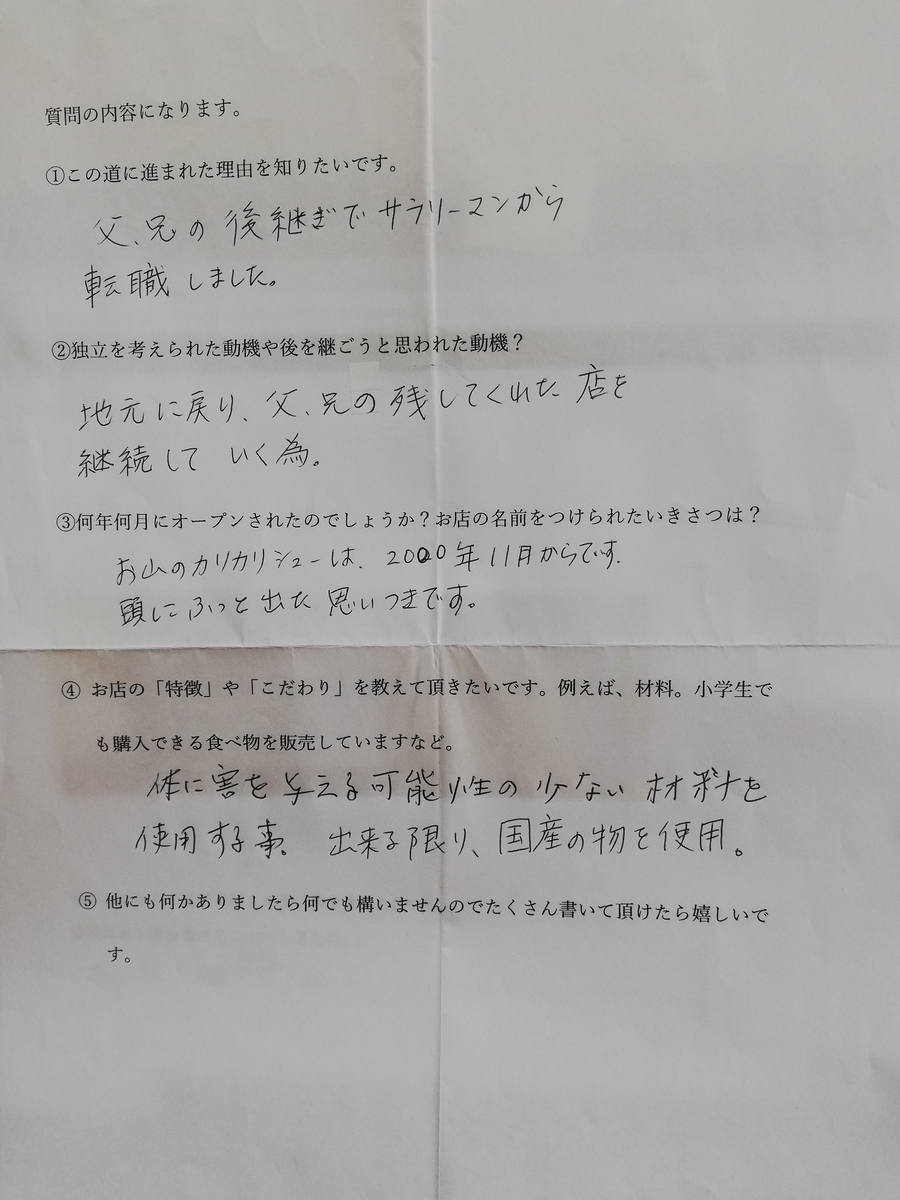 質問の内容になります。
①この道に進まれた理由を知りたいです。
父、兄の後継ぎでサラリーマンから
転職しました。
②独立を考えられた動機や後を継ごうと思われた動機？
地元に戻り、父、兄の残してくれた店を
継続していく為。
③何年何月にオープンされたのでしょうか？お店の名前をつけられたいきさつは？
お山のカリカリシューは、2000年11月からです.
頭にふっと出た思いつきです。
④ お店の「特徴」や「こだわり」を教えて頂きたいです。例えば、材料。小学生で
も購入できる食べ物を販売していますなど。
体に害を与える可能性の少ない材料を
使用する事。出来る限り、国産の物を使用。
⑤ 他にも何かありましたら何でも構いませんのでたくさん書いて頂けたら嬉しいで
す。